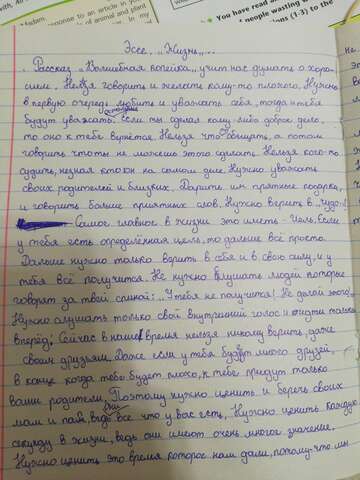 response to an article in your
of animal and plant
it. In my
with, Au
You have read an
people wasting w
(1-3) to the
conditions
Эссе. „Жизнь"...
Рассказ „Волшебная копейка" учит нас думать о хоро-
шем. Нельзя говорить и желать кому-то плохого. Нужно
в первую очередь любить и уважать себя, тогда и тебя
будут уважать. Если ты сделал кому-либо доброе дело,
остальные
то оно к тебе вернётся. Нельзя что-то обещать, а потом
говорить что ты не можешь этого сделать. Нельзя кого-то
судить, незная кто он на самом деле. Нужно уважать
своих родителей и близких. Дарить им приятные подарки,
и говорить больше приятных слов. Нужно верить в „чудо".
Самое главное в жизни это иметь - цель. Если
у тебя есть определённая цель, то дальше всё просто.
Дальше нужно только верить в себя и в свою силу, и у
тебя всё получится. Не нужно слушать людей которые
говорят за твоей спиной: „У тебя не получится! Не делай этого
Нужно слушать только свой внутренний голос и идти только
вперёд. Сейчас в наше время нельзя никому верить, даже
своим друзьям. Даже если у тебя будут много друзей,
в конце когда тебе будет плохо, к тебе придут только
ваши родители. Поэтому нужно ценить и беречь своих
мам и пап, ведь они всё что у вас есть. Нужно ценить каждую
секунду в жизни, ведь они имеют очень много значение.
Нужно ценить это время которое нам дали, потому-что мы